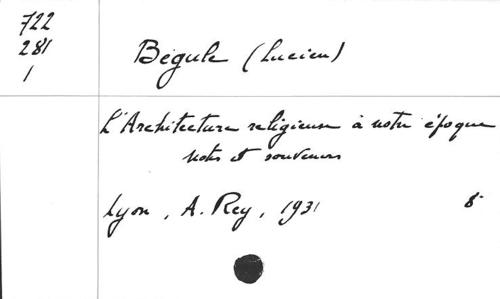 722
281
1
Bégule (Lucien)
L'Architecture religieuse à notre époque
notes et souvenirs
Lyon, A. Rey, 1931 8°